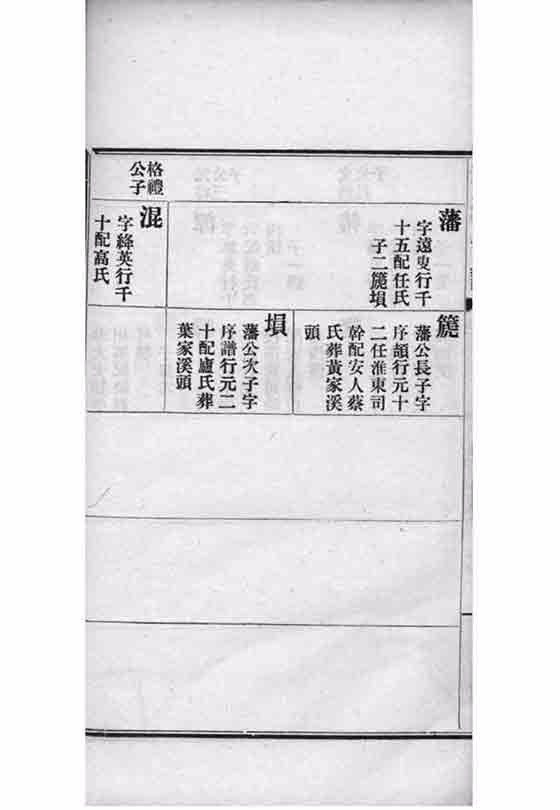 藩
字遠叟行千
十五配任氏
子二篪塤
格禮
公子
混
字絳英行千
十配高氏
篪
藩公長子字
序韻行元十
二任淮東司
幹配安人蔡
氏葬黃家溪
頭
塤
藩公次子字
序譜行元二
十配盧氏葬
葉家溪頭